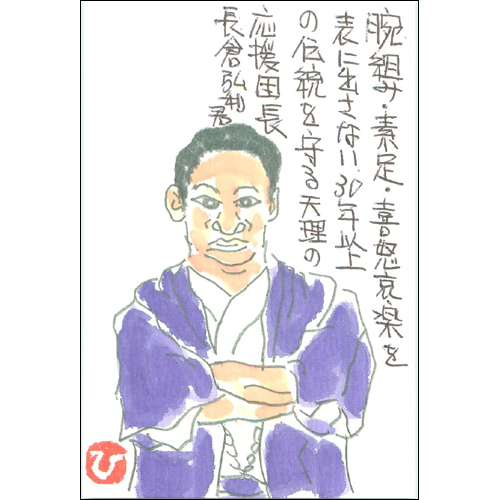 腕組み・素足・喜怒哀楽を
表に出さない、30年以上
の伝統を守る天理の
応援団長
長倉弘利君
ひ